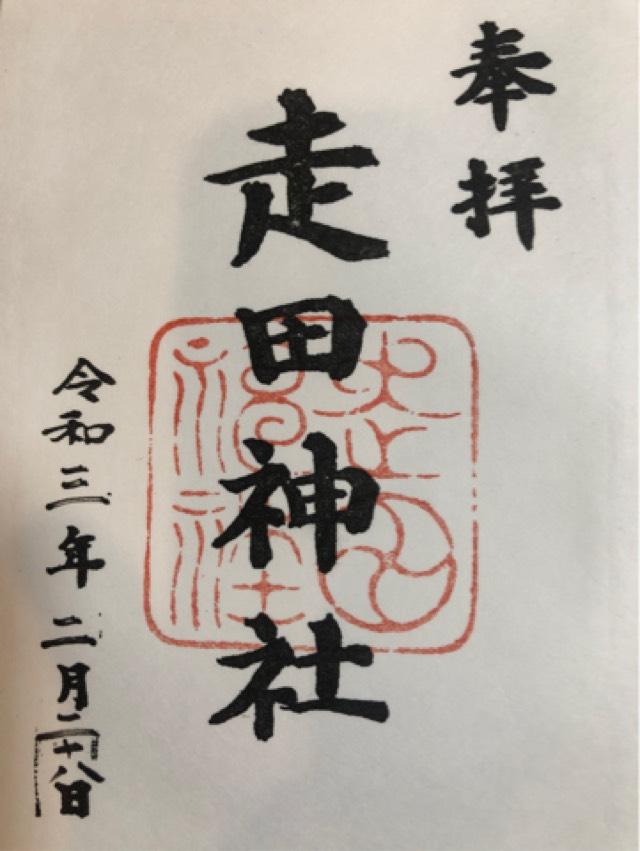 奉拝
走田神社
令和三年二月二十八日